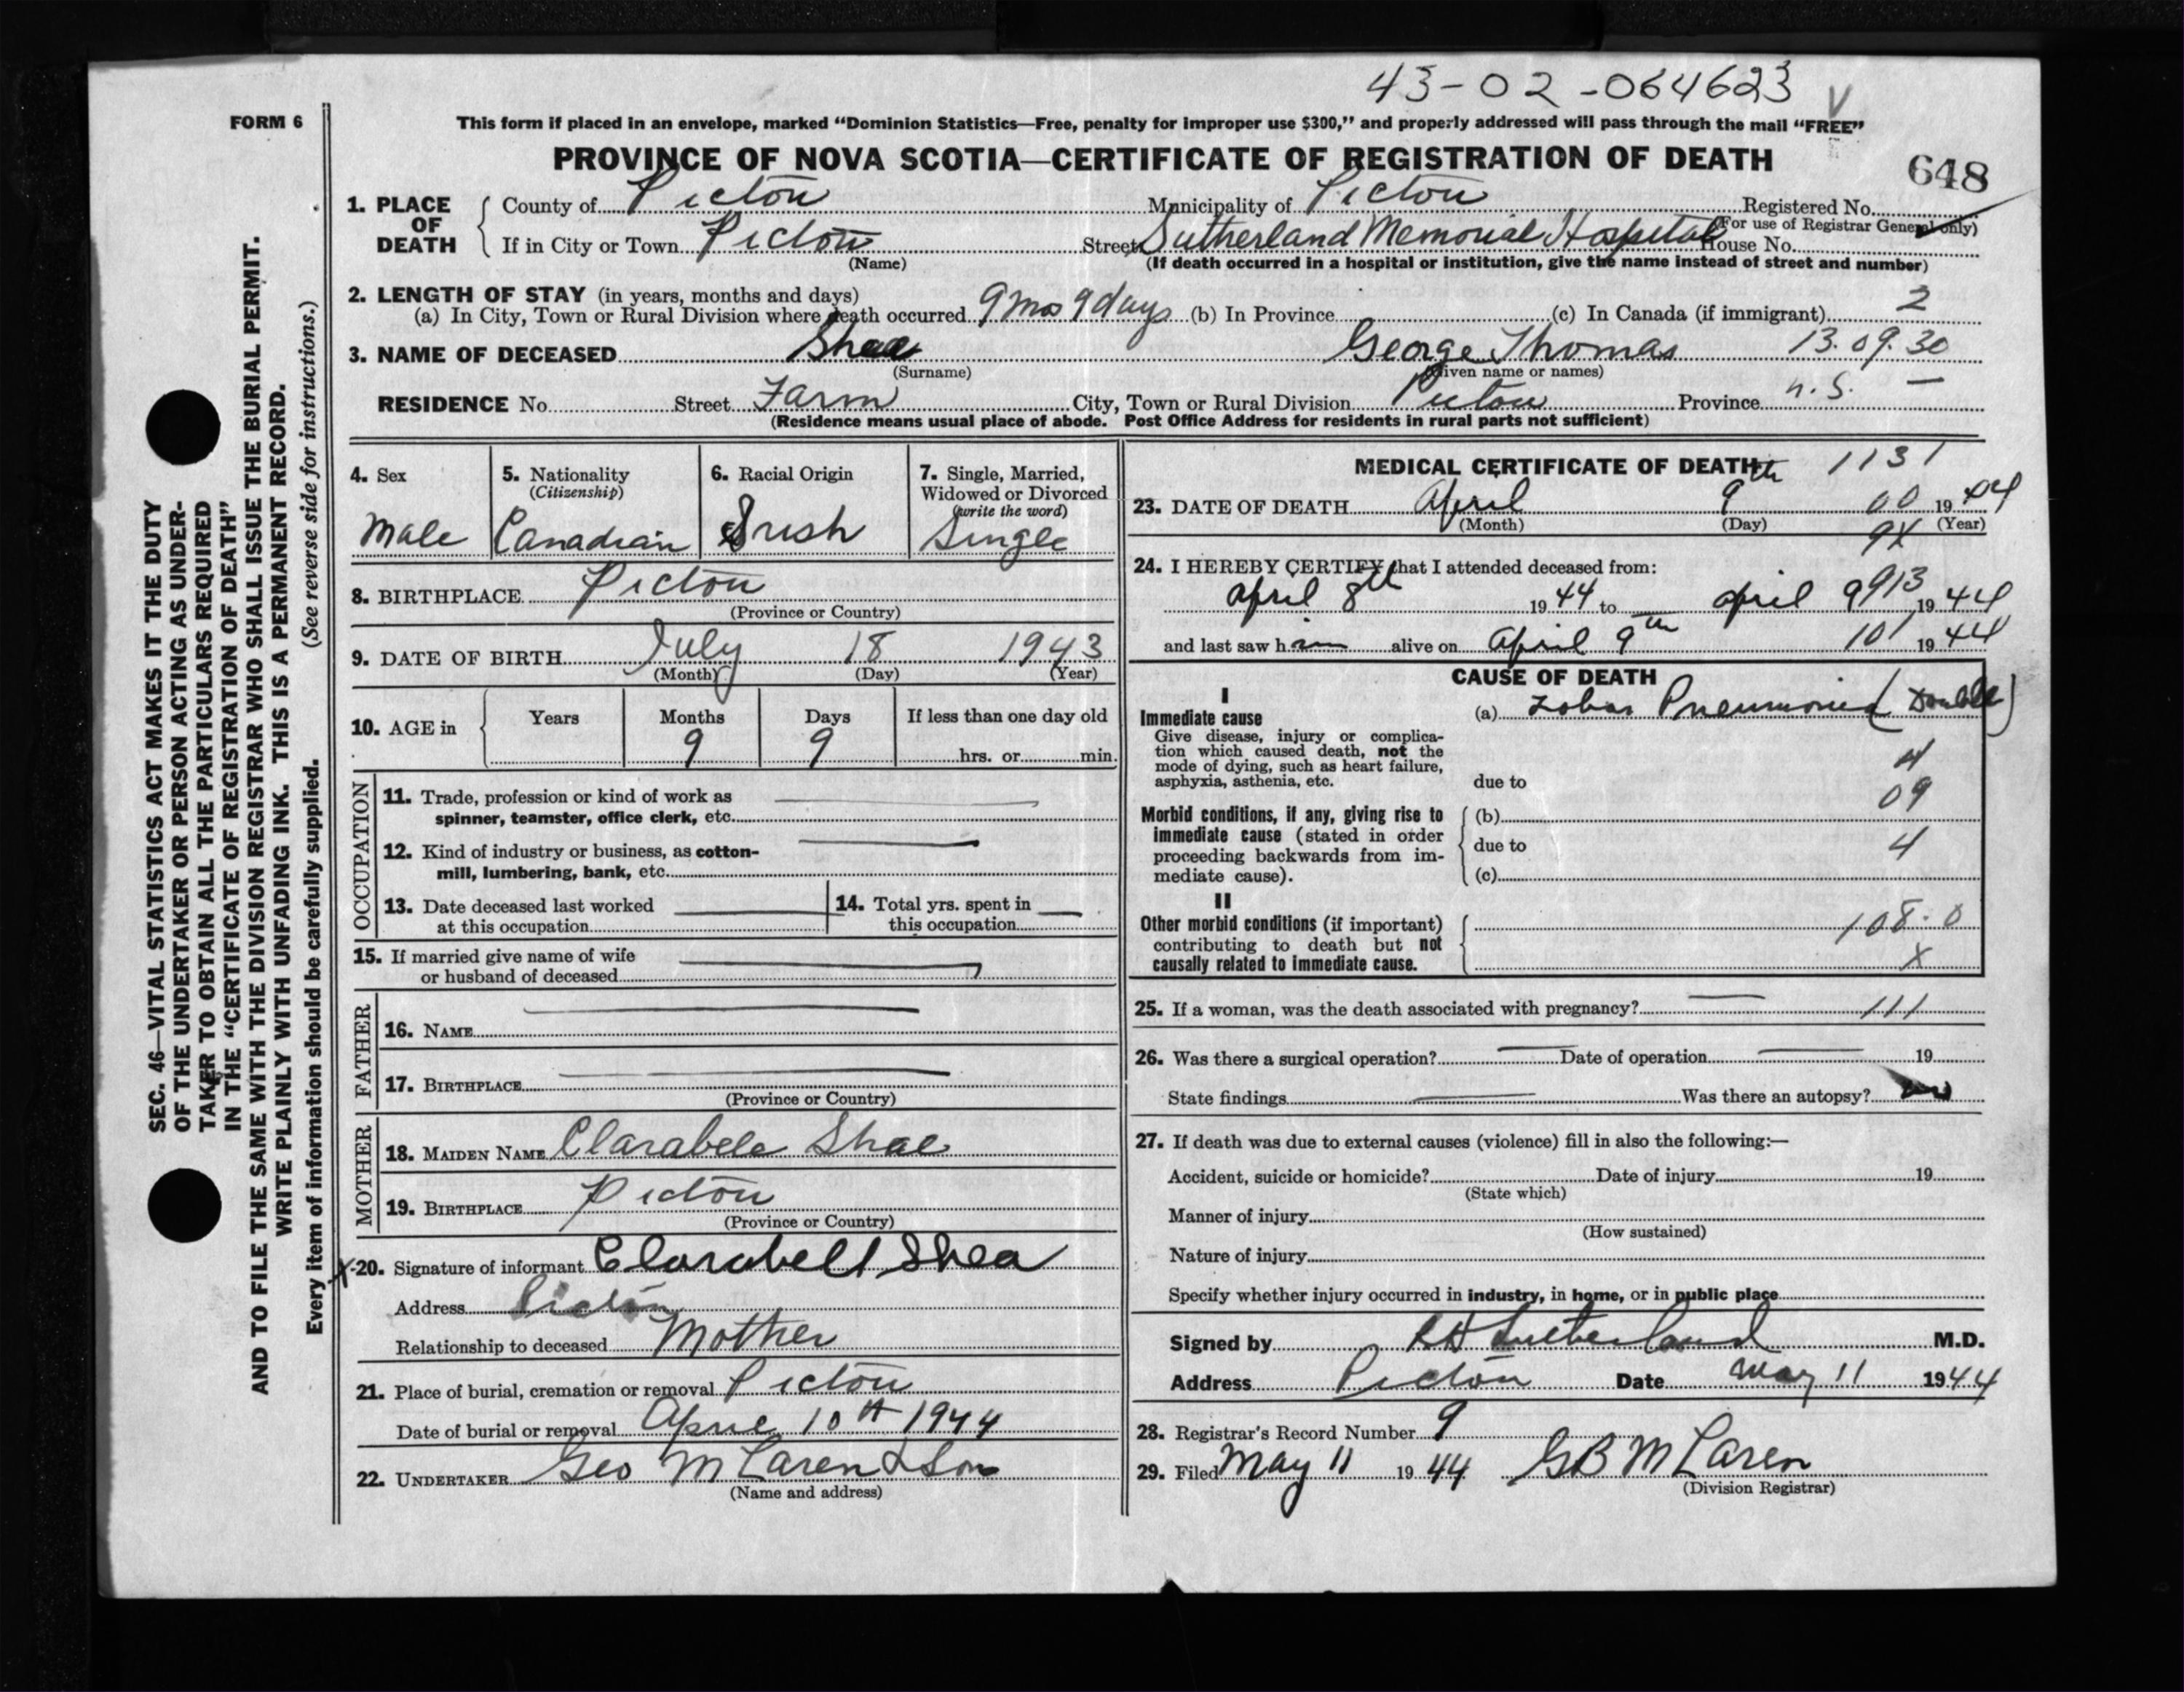 43-02-064623
FORM 6
This form if placed in an envelope, marked "Dominion Statistics—Free, penalty for improper use $300," and properly addressed will pass through the mail "FREE"
PROVINCE OF NOVA SCOTIA—CERTIFICATE OF REGISTRATION OF DEATH
648
1. PLACE OF DEATH
County of Pictou Municipality of Pictou Registered No.
(For use of Registrar General only)
If in City or Town Pictou Street Sutherland Memorial Hospital House No.
(Name) (If death occurred in a hospital or institution, give the name instead of street and number)
2. LENGTH OF STAY (in years, months and days)
(a) In City, Town or Rural Division where death occurred 9 mos 9 days (b) In Province (c) In Canada (if immigrant) 2
3. NAME OF DECEASED Shea George Thomas 13.09.30
(Surname) (Given name or names)
RESIDENCE No. Street Farm City, Town or Rural Division Pictou Province n.S. —
(Residence means usual place of abode. Post Office Address for residents in rural parts not sufficient)
4. Sex
Male
5. Nationality
(Citizenship)
Canadian
6. Racial Origin
Irish
7. Single, Married,
Widowed or Divorced
(write the word)
Single
8. BIRTHPLACE Pictou
(Province or Country)
9. DATE OF BIRTH July 18 1943
(Month) (Day) (Year)
10. AGE in
Years Months Days If less than one day old
9 9 hrs. or min.
OCCUPATION
11. Trade, profession or kind of work as
spinner, teamster, office clerk, etc.
12. Kind of industry or business, as cotton-
mill, lumbering, bank, etc.
13. Date deceased last worked
at this occupation
14. Total yrs. spent in
this occupation
15. If married give name of wife
or husband of deceased
FATHER
16. NAME
17. BIRTHPLACE
(Province or Country)
MOTHER
18. MAIDEN NAME Clarabele Shae
19. BIRTHPLACE Pictou
(Province or Country)
X 20. Signature of informant Clarabell Shea
Address Pictou
Relationship to deceased Mother
21. Place of burial, cremation or removal Pictou
Date of burial or removal April 10th 1944
22. UNDERTAKER Geo McLaren & Son
(Name and address)
MEDICAL CERTIFICATE OF DEATH 1131
23. DATE OF DEATH April 9th 00 1944
(Month) (Day) (Year)
9X
24. I HEREBY CERTIFY that I attended deceased from:
april 8th 1944 to april 9 913 1944
and last saw him alive on April 9th 101 1944
CAUSE OF DEATH
I
Immediate cause
Give disease, injury or complica-
tion which caused death, not the
mode of dying, such as heart failure,
asphyxia, asthenia, etc.
(a) Lobar Pneumonia (Double)
4
due to
09
Morbid conditions, if any, giving rise to
immediate cause (stated in order
proceeding backwards from im-
mediate cause).
(b)
due to 4
(c)
II
Other morbid conditions (if important)
contributing to death but not
causally related to immediate cause.
108.0
X
25. If a woman, was the death associated with pregnancy? 111
26. Was there a surgical operation? Date of operation 19
State findings Was there an autopsy?
27. If death was due to external causes (violence) fill in also the following:—
Accident, suicide or homicide? Date of injury 19
(State which)
Manner of injury
(How sustained)
Nature of injury
Specify whether injury occurred in industry, in home, or in public place
Signed by Sutherland M.D.
Address Pictou Date May 11 1944
28. Registrar's Record Number 9
29. Filed May 11 1944 GB McLaren
(Division Registrar)
SEC. 46—VITAL STATISTICS ACT MAKES IT THE DUTY
OF THE UNDERTAKER OR PERSON ACTING AS UNDER-
TAKER TO OBTAIN ALL THE PARTICULARS REQUIRED
IN THE "CERTIFICATE OF REGISTRATION OF DEATH"
AND TO FILE THE SAME WITH THE DIVISION REGISTRAR WHO SHALL ISSUE THE BURIAL PERMIT.
WRITE PLAINLY WITH UNFADING INK. THIS IS A PERMANENT RECORD.
Every item of information should be carefully supplied. (See reverse side for instructions.)